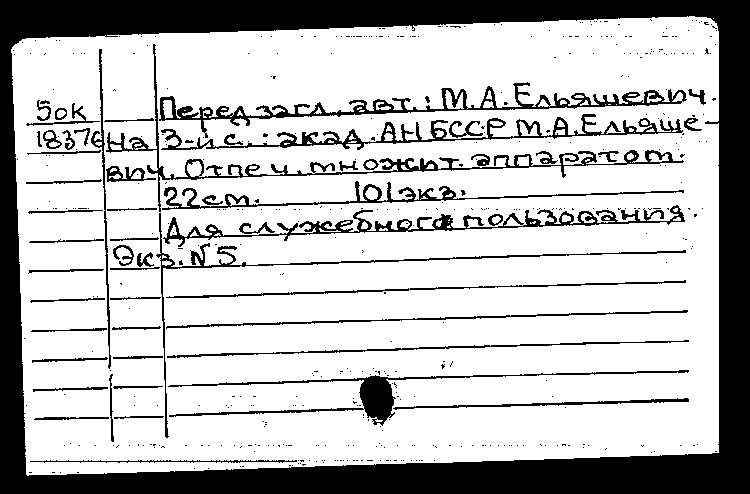 5ок Перед загл. авт.: М.А. Ельяшевич.
18376 На 3-й с.: акад. АН БССР М.А. Ельяше-
вич. Отпеч. множит. аппаратом.
22см. 101экз.
Для служебного пользования.
Экз. N5.